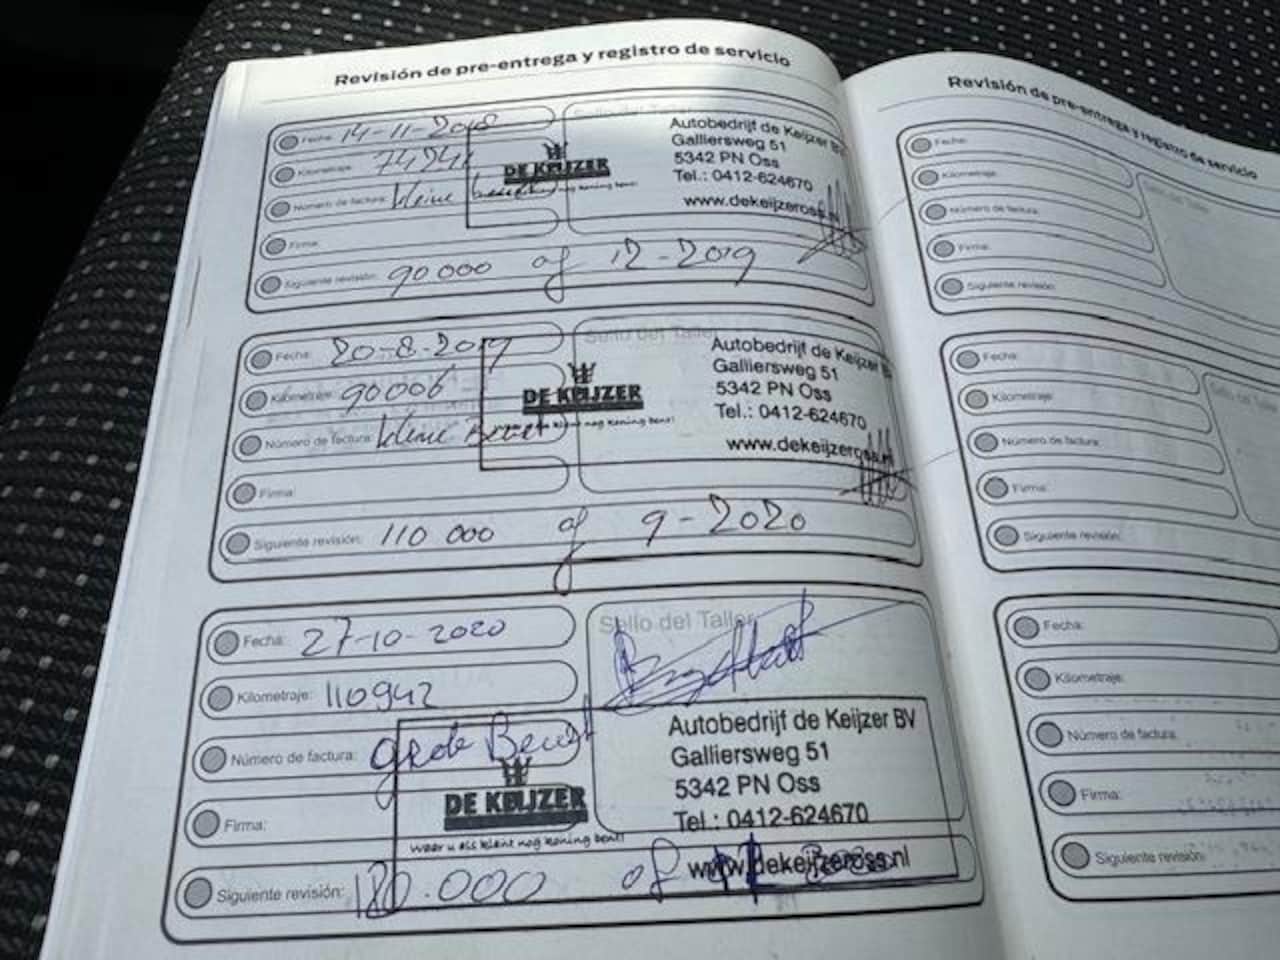 Revisión de pre-entrega y registro de servicio
Fecha: 14-11-2018
Sello del Taller
Kilometraje:
Número de factura: kleine beurt
Firma:
Siguiente revisión: 90 000 of 12-2019
DE KEIJZER
Autobedrijf de Keijzer BV
Galliersweg 51
5342 PN Oss
Tel.: 0412-624670
www.dekeijzeross.nl
Fecha: 20-8-2019
Sello del Taller
Kilometraje: 90006
Número de factura: kleine Beurt
Firma:
Siguiente revisión: 110 000 of 9-2020
DE KEIJZER
als klant nog koning bent!
Autobedrijf de Keijzer B
Galliersweg 51
5342 PN Oss
Tel.: 0412-624670
www.dekeijzeross.nl
Fecha: 27-10-2020
Sello del Taller
Kilometraje: 110942
Número de factura: Grote Beurt
Firma:
Siguiente revisión: of
DE KEIJZER
Waar u als klant nog koning bent!
Autobedrijf de Keijzer BV
Galliersweg 51
5342 PN Oss
Tel.: 0412-624670
www.dekeijzeross.nl
Revisión de pre-entrega y registro de servicio
Fecha:
Kilometraje:
Número de factura:
Firma:
Siguiente revisión:
Fecha:
Sello del Taller
Kilometraje:
Número de factura:
Firma:
Siguiente revisión:
Fecha:
Kilometraje:
Número de factura:
Firma:
Siguiente revisión: